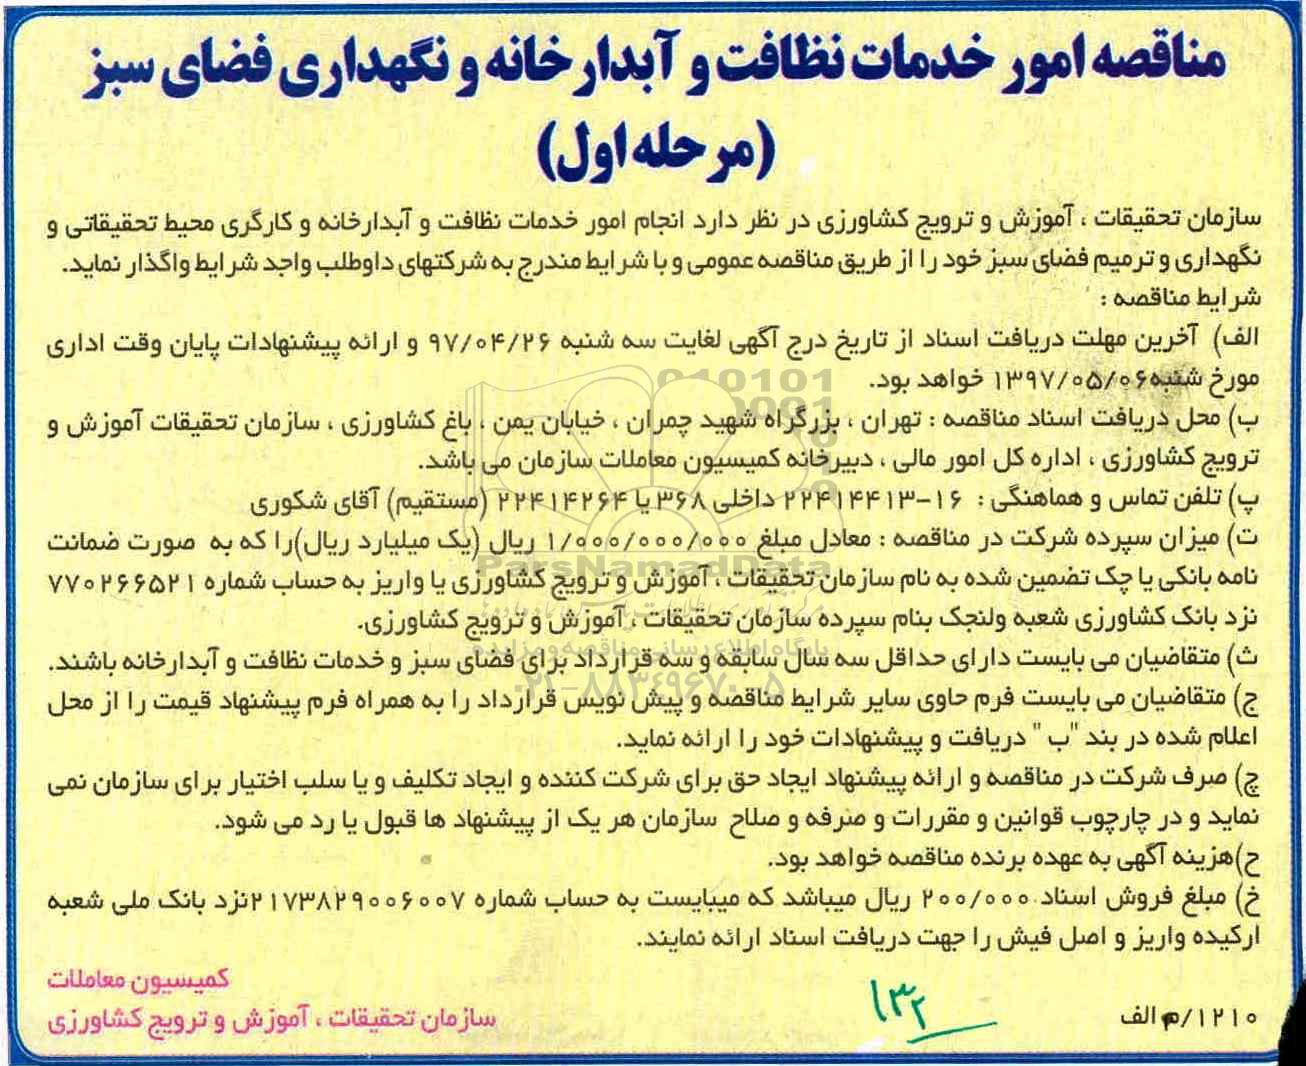 مناقصه امور خدمات نظافت و آبدارخانه و نگهداری فضای سبز
(مرحله اول)
سازمان تحقیقات ، آموزش و ترویج کشاورزی در نظر دارد انجام امور خدمات نظافت و آبدارخانه و کارگری محیط تحقیقاتی و
نگهداری و ترمیم فضای سبز خود را از طریق مناقصه عمومی و با شرایط مندرج به شرکتهای داوطلب واجد شرایط واگذار نماید.
شرایط مناقصه :
الف) آخرین مهلت دریافت اسناد از تاریخ درج آگهی لغایت سه شنبه ۹۷/۰۴/۲۶ و ارائه پیشنهادات پایان وقت اداری
مورخ شنبه۱۳۹۷/۰۵/۰۶ خواهد بود.
ب) محل دریافت اسناد مناقصه : تهران ، بزرگراه شهید چمران ، خیابان یمن ، باغ کشاورزی ، سازمان تحقیقات آموزش و
ترویج کشاورزی ، اداره کل امور مالی ، دبیرخانه کمیسیون معاملات سازمان می باشد.
پ) تلفن تماس و هماهنگی : ۱۶-۲۲۴۱۴۴۱۳ داخلی ۳۶۸ یا ۲۲۴۱۴۲۶۴ (مستقیم) آقای شکوری
ت) میزان سپرده شرکت در مناقصه : معادل مبلغ ۱/۰۰۰/۰۰۰/۰۰۰ ریال (یک میلیارد ریال)را که به صورت ضمانت
نامه بانکی یا چک تضمین شده به نام سازمان تحقیقات ، آموزش و ترویج کشاورزی یا واریز به حساب شماره ۷۷۰۲۶۶۵۲۱
نزد بانک کشاورزی شعبه ولنجک بنام سپرده سازمان تحقیقات ، آموزش و ترویج کشاورزی.
ث) متقاضیان می بایست دارای حداقل سه سال سابقه و سه قرارداد برای فضای سبز و خدمات نظافت و آبدارخانه باشند.
ج) متقاضیان می بایست فرم حاوی سایر شرایط مناقصه و پیش نویس قرارداد را به همراه فرم پیشنهاد قیمت را از محل
اعلام شده در بند "ب " دریافت و پیشنهادات خود را ارائه نماید.
چ) صرف شرکت در مناقصه و ارائه پیشنهاد ایجاد حق برای شرکت کننده و ایجاد تکلیف و یا سلب اختیار برای سازمان نمی
نماید و در چارچوب قوانین و مقررات و صرفه و صلاح سازمان هر یک از پیشنهاد ها قبول یا رد می شود.
ح)هزینه آگهی به عهده برنده مناقصه خواهد بود.
خ) مبلغ فروش اسناد ۲۰۰/۰۰۰ ریال میباشد که میبایست به حساب شماره ۲۱۷۳۸۲۹۰۰۶۰۰۷نزد بانک ملی شعبه
ارکیده واریز و اصل فیش را جهت دریافت اسناد ارائه نمایند.
کمیسیون معاملات
سازمان تحقیقات ، آموزش و ترویج کشاورزی
۱۲۱۰/م الف
۱۳۲
ParsNamadData
پایگاه اطلاع رسانی مناقصه و مزایده
۰۲۱-۸۸۳۴۹۶۷۰-۵